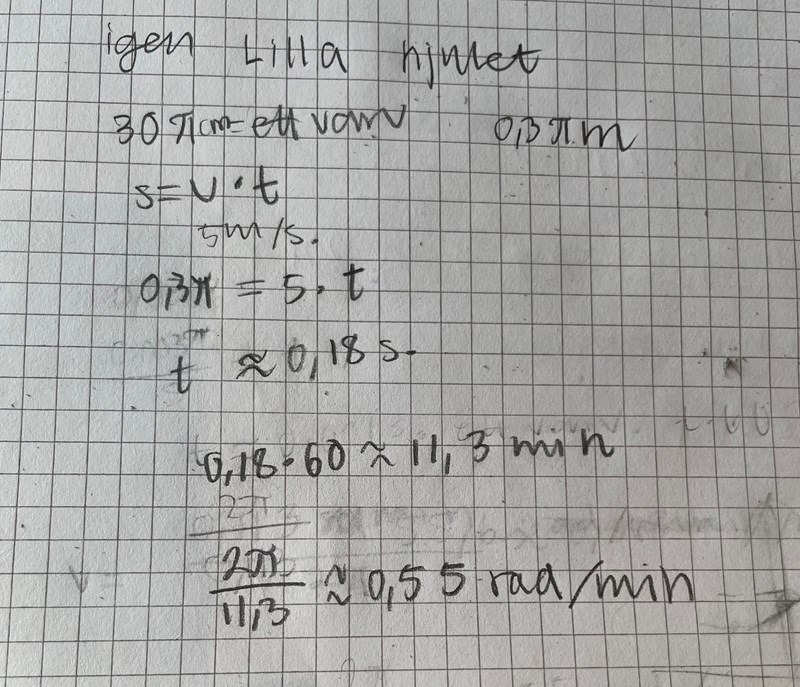 igen Lilla hjulet
30 π cm = ett varv 0,3 π m
s = v · t
5 m/s.
0,3π = 5 · t
t ≈ 0,18 s.
0,18 · 60 ≈ 11,3 min
2π
2π/11,3 ≈ 0,55 rad/min